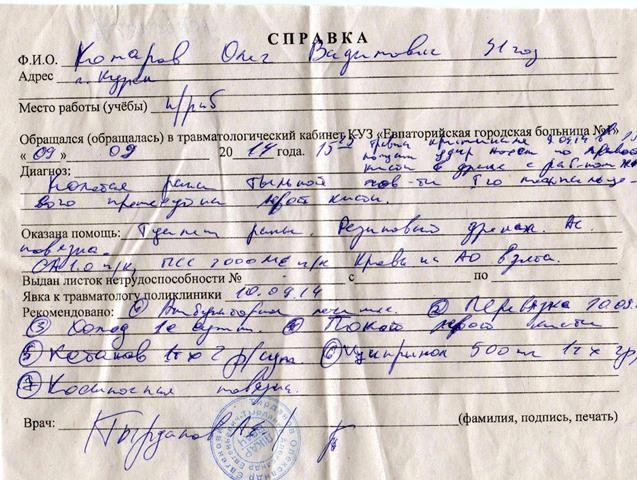 СПРАВКА
Ф.И.О. Комаров Олег Вадимович 41 год
Адрес г. Курск
Место работы (учёбы) н/раб
Обращался (обращалась) в травматологический кабинет КУЗ «Евпаторийская городская больница №1»
« 09 » 09 2014 года. 15 Травма криминальная 9.09.14 в
получил удар ножом по правой
Диагноз: кисти в драке с
Колотая рана тыльной пов-ти I го межпальце-
вого промежутка правой кисти.
Оказана помощь: Туалет раны. Резиновый дренаж. Ас.
повязка.
СА 1.0 п/к, ПСС 3000 МЕ п/к Кровь на АО взята.
Выдан листок нетрудоспособности № - с по
Явка к травматологу поликлиники 10.09.14
Рекомендовано: ① Амбулаторное лечение ② Перевязка 10.09.
③ Холод 1е сутки. ④ Покой правой кисти
⑤ Кетанов 1т х 2 р/сут. ⑥ Ципринол 500 1т х 2 р
⑦ Косыночная повязка.
Врач: (фамилия, подпись, печать)